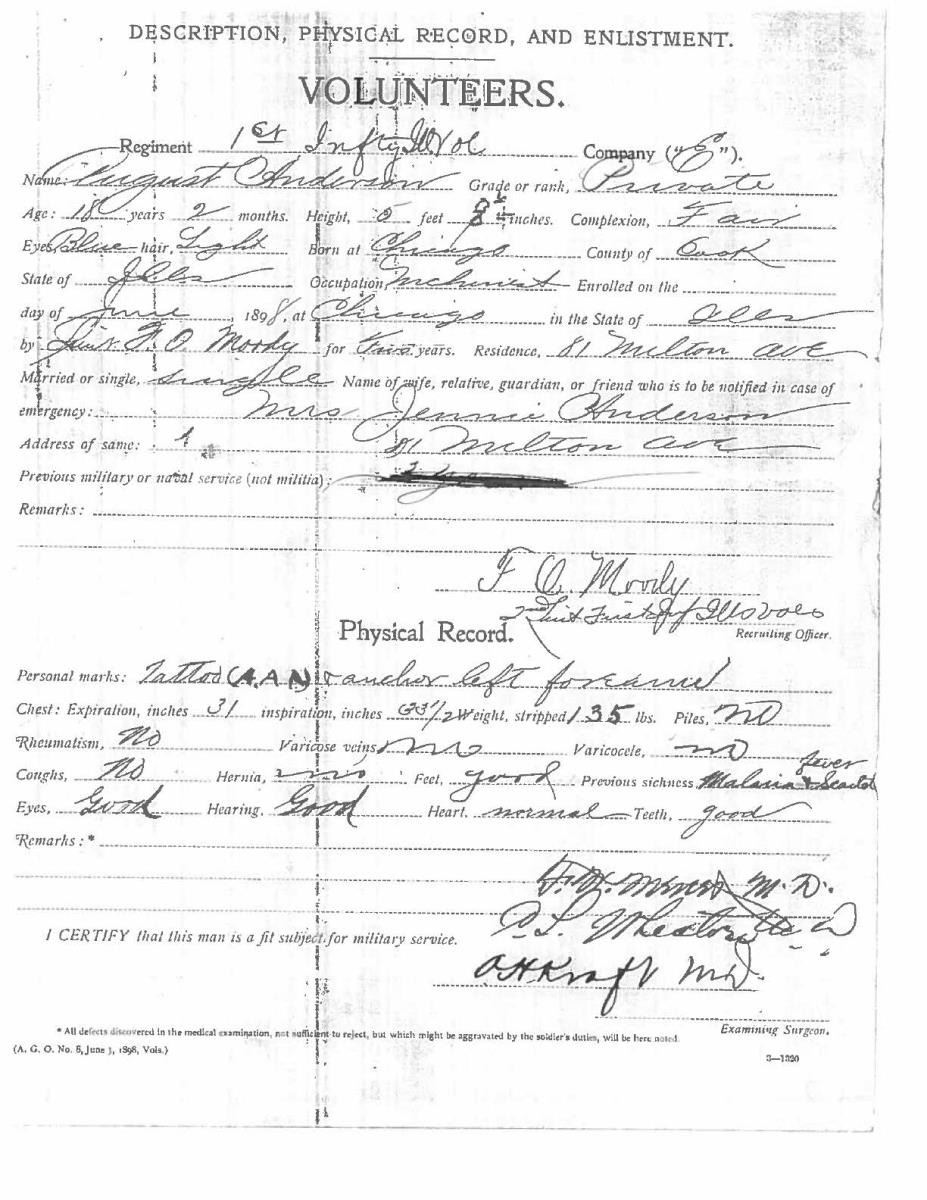 DESCRIPTION, PHYSICAL RECORD, AND ENLISTMENT.
VOLUNTEERS.
Regiment 1st Infty Ill Vol Company ("E").
Name: August Anderson Grade or rank, Private
Age: 18 years 2 months. Height, 5 feet 8 inches. Complexion, Fair
Eyes, Blue hair, Light Born at Chicago County of Cook
State of Ills Occupation, Machinist Enrolled on the
day of June, 1898, at Chicago in the State of Ills
by Lieut. F. O. Moody for Two years. Residence, 81 Milton Ave
Married or single, Single Name of wife, relative, guardian, or friend who is to be notified in case of
emergency: Mrs Jennie Anderson
Address of same: 81 Milton Ave
Previous military or naval service (not militia):
Remarks:
F. O. Moody
2nd Lieut First Inf Ills Vols
Physical Record. Recruiting Officer.
Personal marks: Tattoo (A.A.N) & anchor left forearm
Chest: Expiration, inches 31 inspiration, inches 33 1/2 Weight, stripped 135 lbs. Piles, no
Rheumatism, No Varicose veins, no Varicocele, no
Coughs, No Hernia, no Feet, good Previous sickness, Malaria & Scarlet fever
Eyes, Good Hearing, Good Heart, normal Teeth, good
Remarks:*
M.D.
I CERTIFY that this man is a fit subject for military service.
O H Kraft MD.
Examining Surgeon.
* All defects discovered in the medical examination, not sufficient to reject, but which might be aggravated by the soldier's duties, will be here noted.
(A. G. O. No. 6, June 3, 1898, Vols.) 3—1320